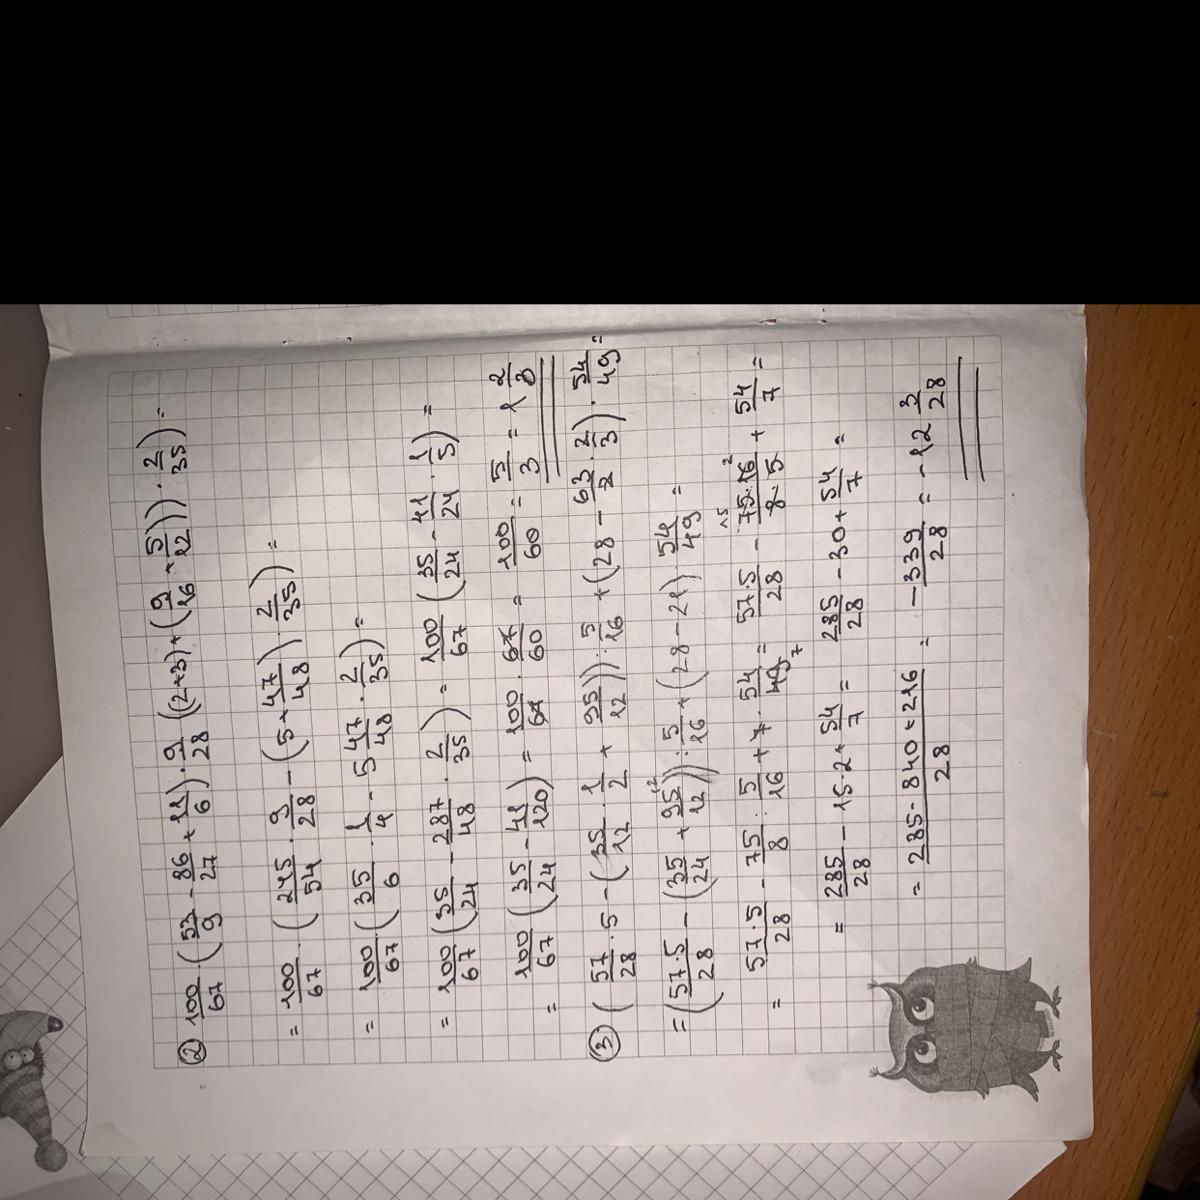 ② 100/67 · (53/9 - 86/27 + 11/6) · 9/28 ((2+3) + (9/16 + 5/12)) · 2/35) =
= 100/67 · (245/54 · 9/28 - (5 + 47/48) · 2/35) =
= 100/67 · (35/6 · 1/4 - 5 47/48 · 2/35) =
= 100/67 (35/24 - 287/48 · 2/35) = 100/67 (35/24 - 41/24 · 1/5) =
= 100/67 (35/24 - 41/120) = 100/67 · 67/60 = 100/60 = 5/3 = 1 2/3
③ (57/28 · 5 - (35/12 · 1/2 + 95/12)) : 5/16 + (28 - 63/2 · 2/3) · 54/49 =
= (57·5/28 - (35/24 + 95/12)) : 5/16 + (28 - 21) · 54/49 =
= 57·5/28 - 75/8 : 5/16 + 7 · 54/49 = 57·5/28 - 75·16/8·5 + 54/7 =
= 285/28 - 15·2 + 54/7 = 285/28 - 30 + 54/7 =
= 285 - 840 + 216/28 = - 339/28 = - 12 3/28